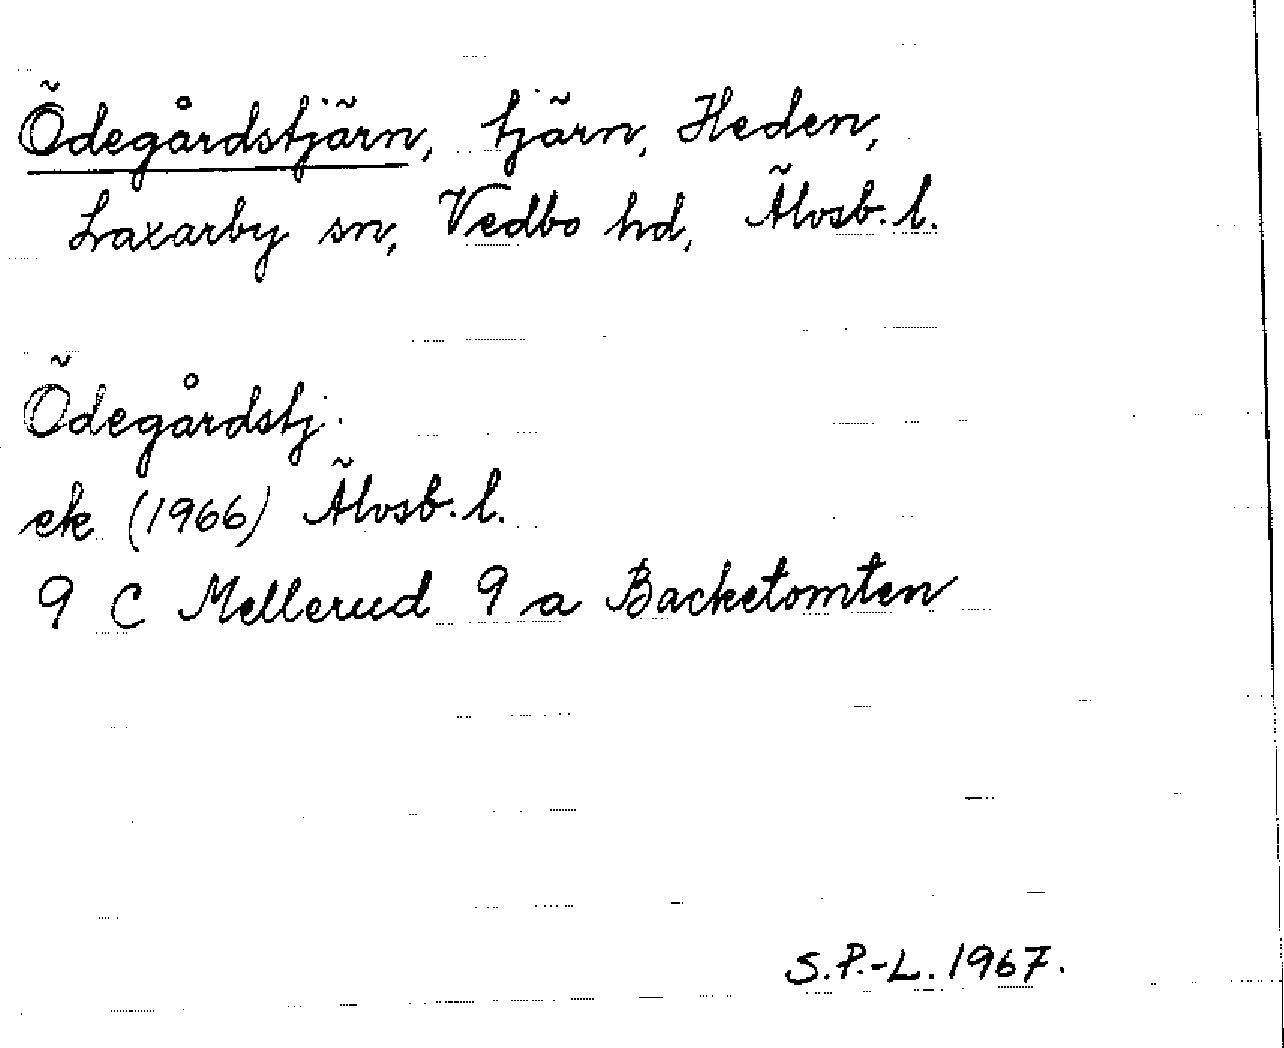 Ödegårdstjärn, tjärn, Heden,
Laxarby sn, Vedbo hd, Älvsb. l.
Ödegårdstj.
ek (1966) Älvsb. l.
9 C Mellerud 9 a Backetomten
S.P.-L. 1967.